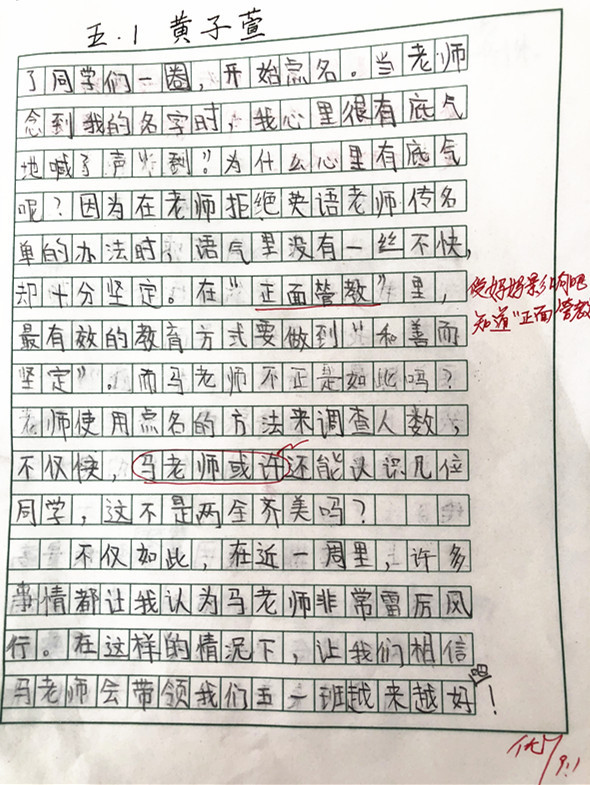 五.1 黄子萱
了同学们一圈，开始点名。当老师
念到我的名字时，我心里很有底气
地喊了声“到”。为什么心里有底气
呢？因为在老师拒绝英语老师传名
单的办法时，语气里没有一丝不快，
却十分坚定。在“正面管教”里，
受好妈影响吧
知道“正面管教
最有效的教育方式要做到“和善而
坚定”。而马老师不正是如此吗？
老师使用点名的方法来调查人数，
不仅快，马老师或许还能认识几位
同学，这不是两全齐美吗？
不仅如此，在近一周里，许多
事情都让我认为马老师非常雷厉风
行。在这样的情况下，让我们相信
马老师会带领我们五一班越来越好吧！
优
9.1